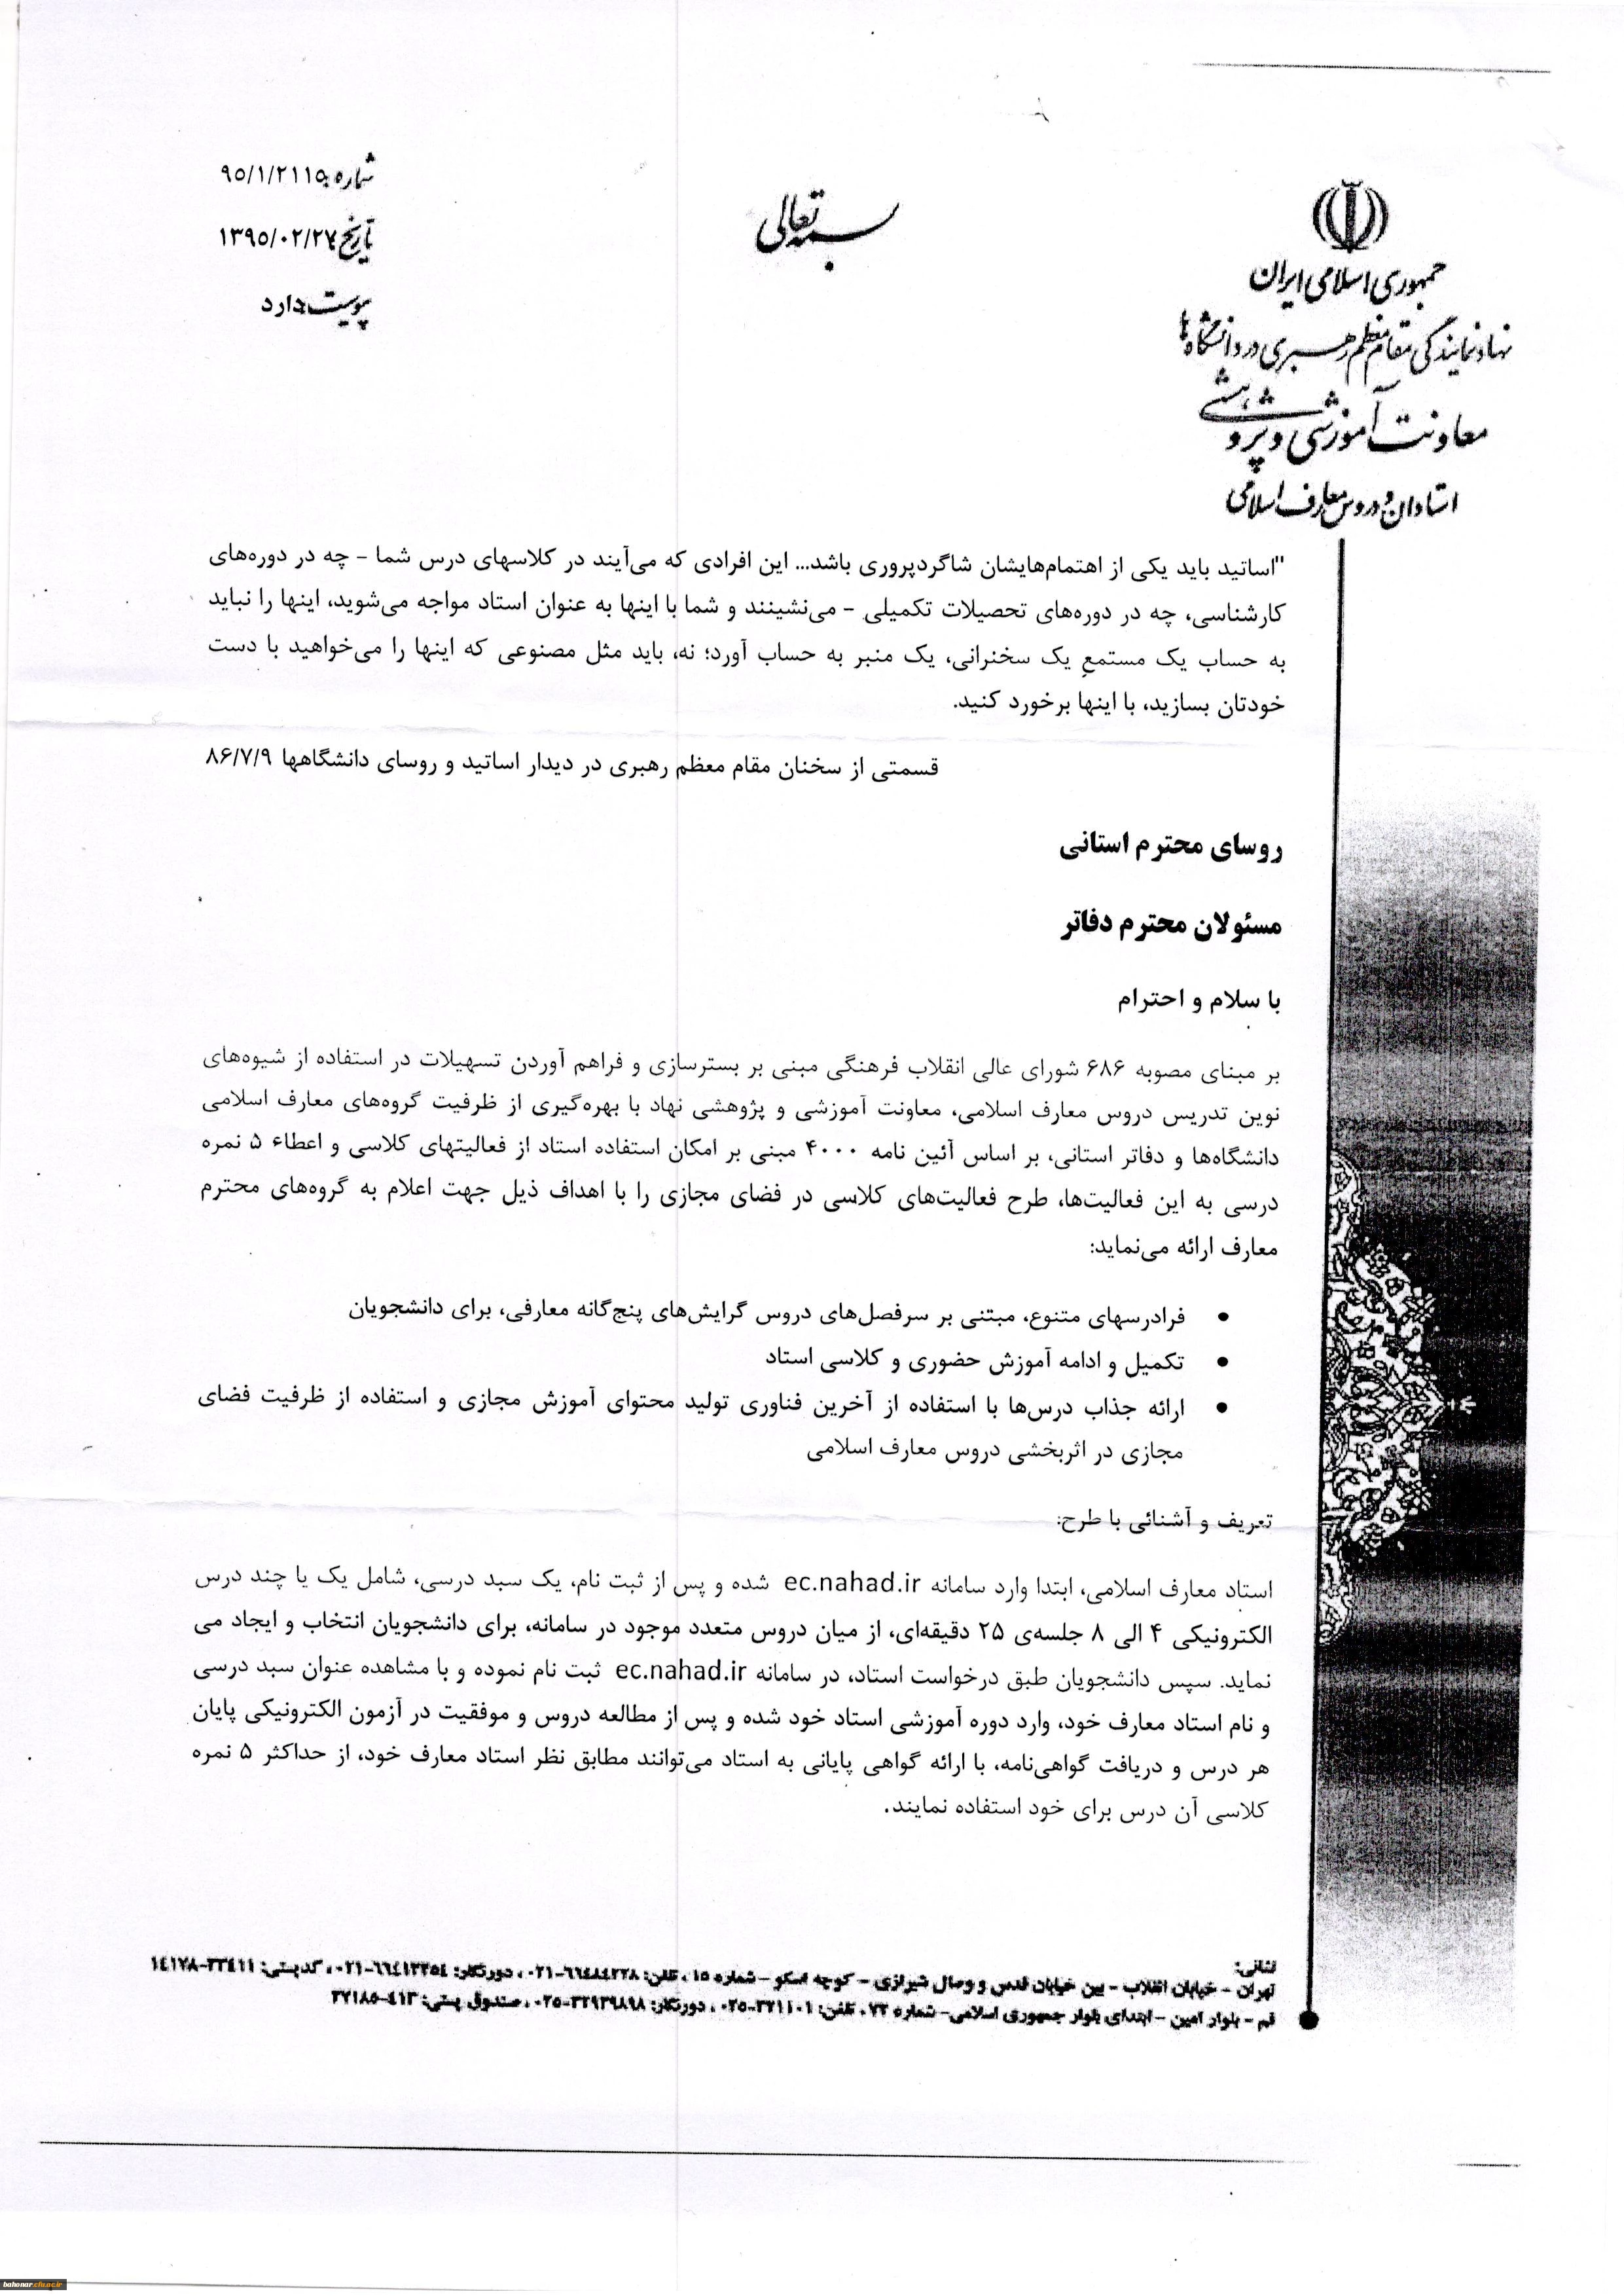 بسمه تعالی
شماره: ۹۵/۱/۲۱۱۵
تاریخ: ۱۳۹۵/۰۲/۲۷
پیوست: دارد
جمهوری اسلامی ایران
نهاد نمایندگی مقام معظم رهبری در دانشگاه‌ها
معاونت آموزشی و پژوهشی
استادان و دروس معارف اسلامی
"اساتید باید یکی از اهتمام‌هایشان شاگردپروری باشد... این افرادی که می‌آیند در کلاسهای درس شما - چه در دوره‌های
کارشناسی، چه در دوره‌های تحصیلات تکمیلی - می‌نشینند و شما با اینها به عنوان استاد مواجه می‌شوید، اینها را نباید
به حساب یک مستمعِ یک سخنرانی، یک منبر به حساب آورد؛ نه، باید مثل مصنوعی که اینها را می‌خواهید با دست
خودتان بسازید، با اینها برخورد کنید.
قسمتی از سخنان مقام معظم رهبری در دیدار اساتید و روسای دانشگاهها ۸۶/۷/۹
روسای محترم استانی
مسئولان محترم دفاتر
با سلام و احترام
بر مبنای مصوبه ۶۸۶ شورای عالی انقلاب فرهنگی مبنی بر بسترسازی و فراهم آوردن تسهیلات در استفاده از شیوه‌های
نوین تدریس دروس معارف اسلامی، معاونت آموزشی و پژوهشی نهاد با بهره‌گیری از ظرفیت گروه‌های معارف اسلامی
دانشگاه‌ها و دفاتر استانی، بر اساس آئین نامه ۴۰۰۰ مبنی بر امکان استفاده استاد از فعالیتهای کلاسی و اعطاء ۵ نمره
درسی به این فعالیت‌ها، طرح فعالیت‌های کلاسی در فضای مجازی را با اهداف ذیل جهت اعلام به گروه‌های محترم
معارف ارائه می‌نماید:
• فرادرسهای متنوع، مبتنی بر سرفصل‌های دروس گرایش‌های پنج‌گانه معارفی، برای دانشجویان
• تکمیل و ادامه آموزش حضوری و کلاسی استاد
• ارائه جذاب درس‌ها با استفاده از آخرین فناوری تولید محتوای آموزش مجازی و استفاده از ظرفیت فضای
مجازی در اثربخشی دروس معارف اسلامی
تعریف و آشنائی با طرح:
استاد معارف اسلامی، ابتدا وارد سامانه ec.nahad.ir شده و پس از ثبت نام، یک سبد درسی، شامل یک یا چند درس
الکترونیکی ۴ الی ۸ جلسه‌ی ۲۵ دقیقه‌ای، از میان دروس متعدد موجود در سامانه، برای دانشجویان انتخاب و ایجاد می
نماید. سپس دانشجویان طبق درخواست استاد، در سامانه ec.nahad.ir ثبت نام نموده و با مشاهده عنوان سبد درسی
و نام استاد معارف خود، وارد دوره آموزشی استاد خود شده و پس از مطالعه دروس و موفقیت در آزمون الکترونیکی پایان
هر درس و دریافت گواهی‌نامه، با ارائه گواهی پایانی به استاد می‌توانند مطابق نظر استاد معارف خود، از حداکثر ۵ نمره
کلاسی آن درس برای خود استفاده نمایند.
نشانی:
تهران - خیابان انقلاب - بین خیابان قدس و وصال شیرازی - کوچه اسکو - شماره ۱۵ ، تلفن: ، دورنگار: ، کدپستی: ۱۴۱۷۸-۳۳۴۱۱
قم - بلوار امین - ابتدای بلوار جمهوری اسلامی - شماره ۷۳، تلفن: ، دورنگار: ، صندوق پستی: ۴۱۳-۳۷۱۸۵
bahonar.cfu.ac.ir